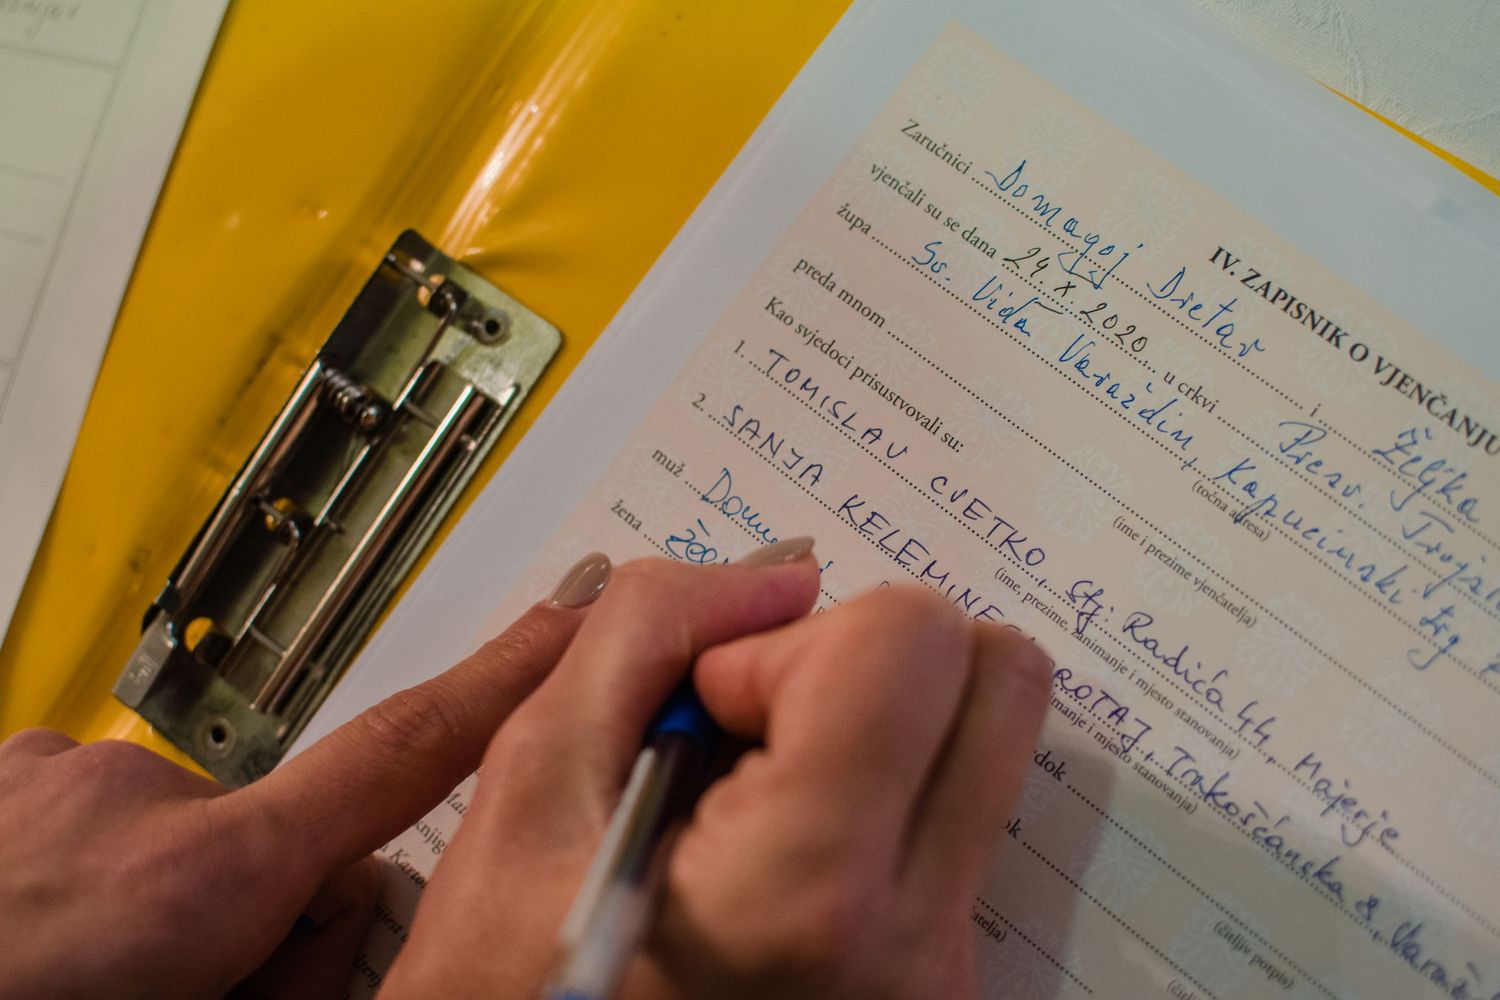 IV. ZAPISNIK O VJENČANJU
Zaručnici Domagoj Dretar i Željka
vjenčali su se dana 24. X. 2020. u crkvi Presv. Trojstva
župa Sv. Vida Varaždin, Kapucinski trg
(točna adresa)
preda mnom
(ime i prezime vjenčatelja)
Kao svjedoci prisustvovali su:
1. TOMISLAV CVETKO, Stj. Radića 44, Majerje
(ime, prezime, zanimanje i mjesto stanovanja)
2. SANJA KELEMINEC DROTAJ, Trakošćanska 8, Varaž
manje i mjesto stanovanja)
muž Dom
žena Žel
dok
(čitljiv potpis)
ok
(čitljiv
atelja)
knjig